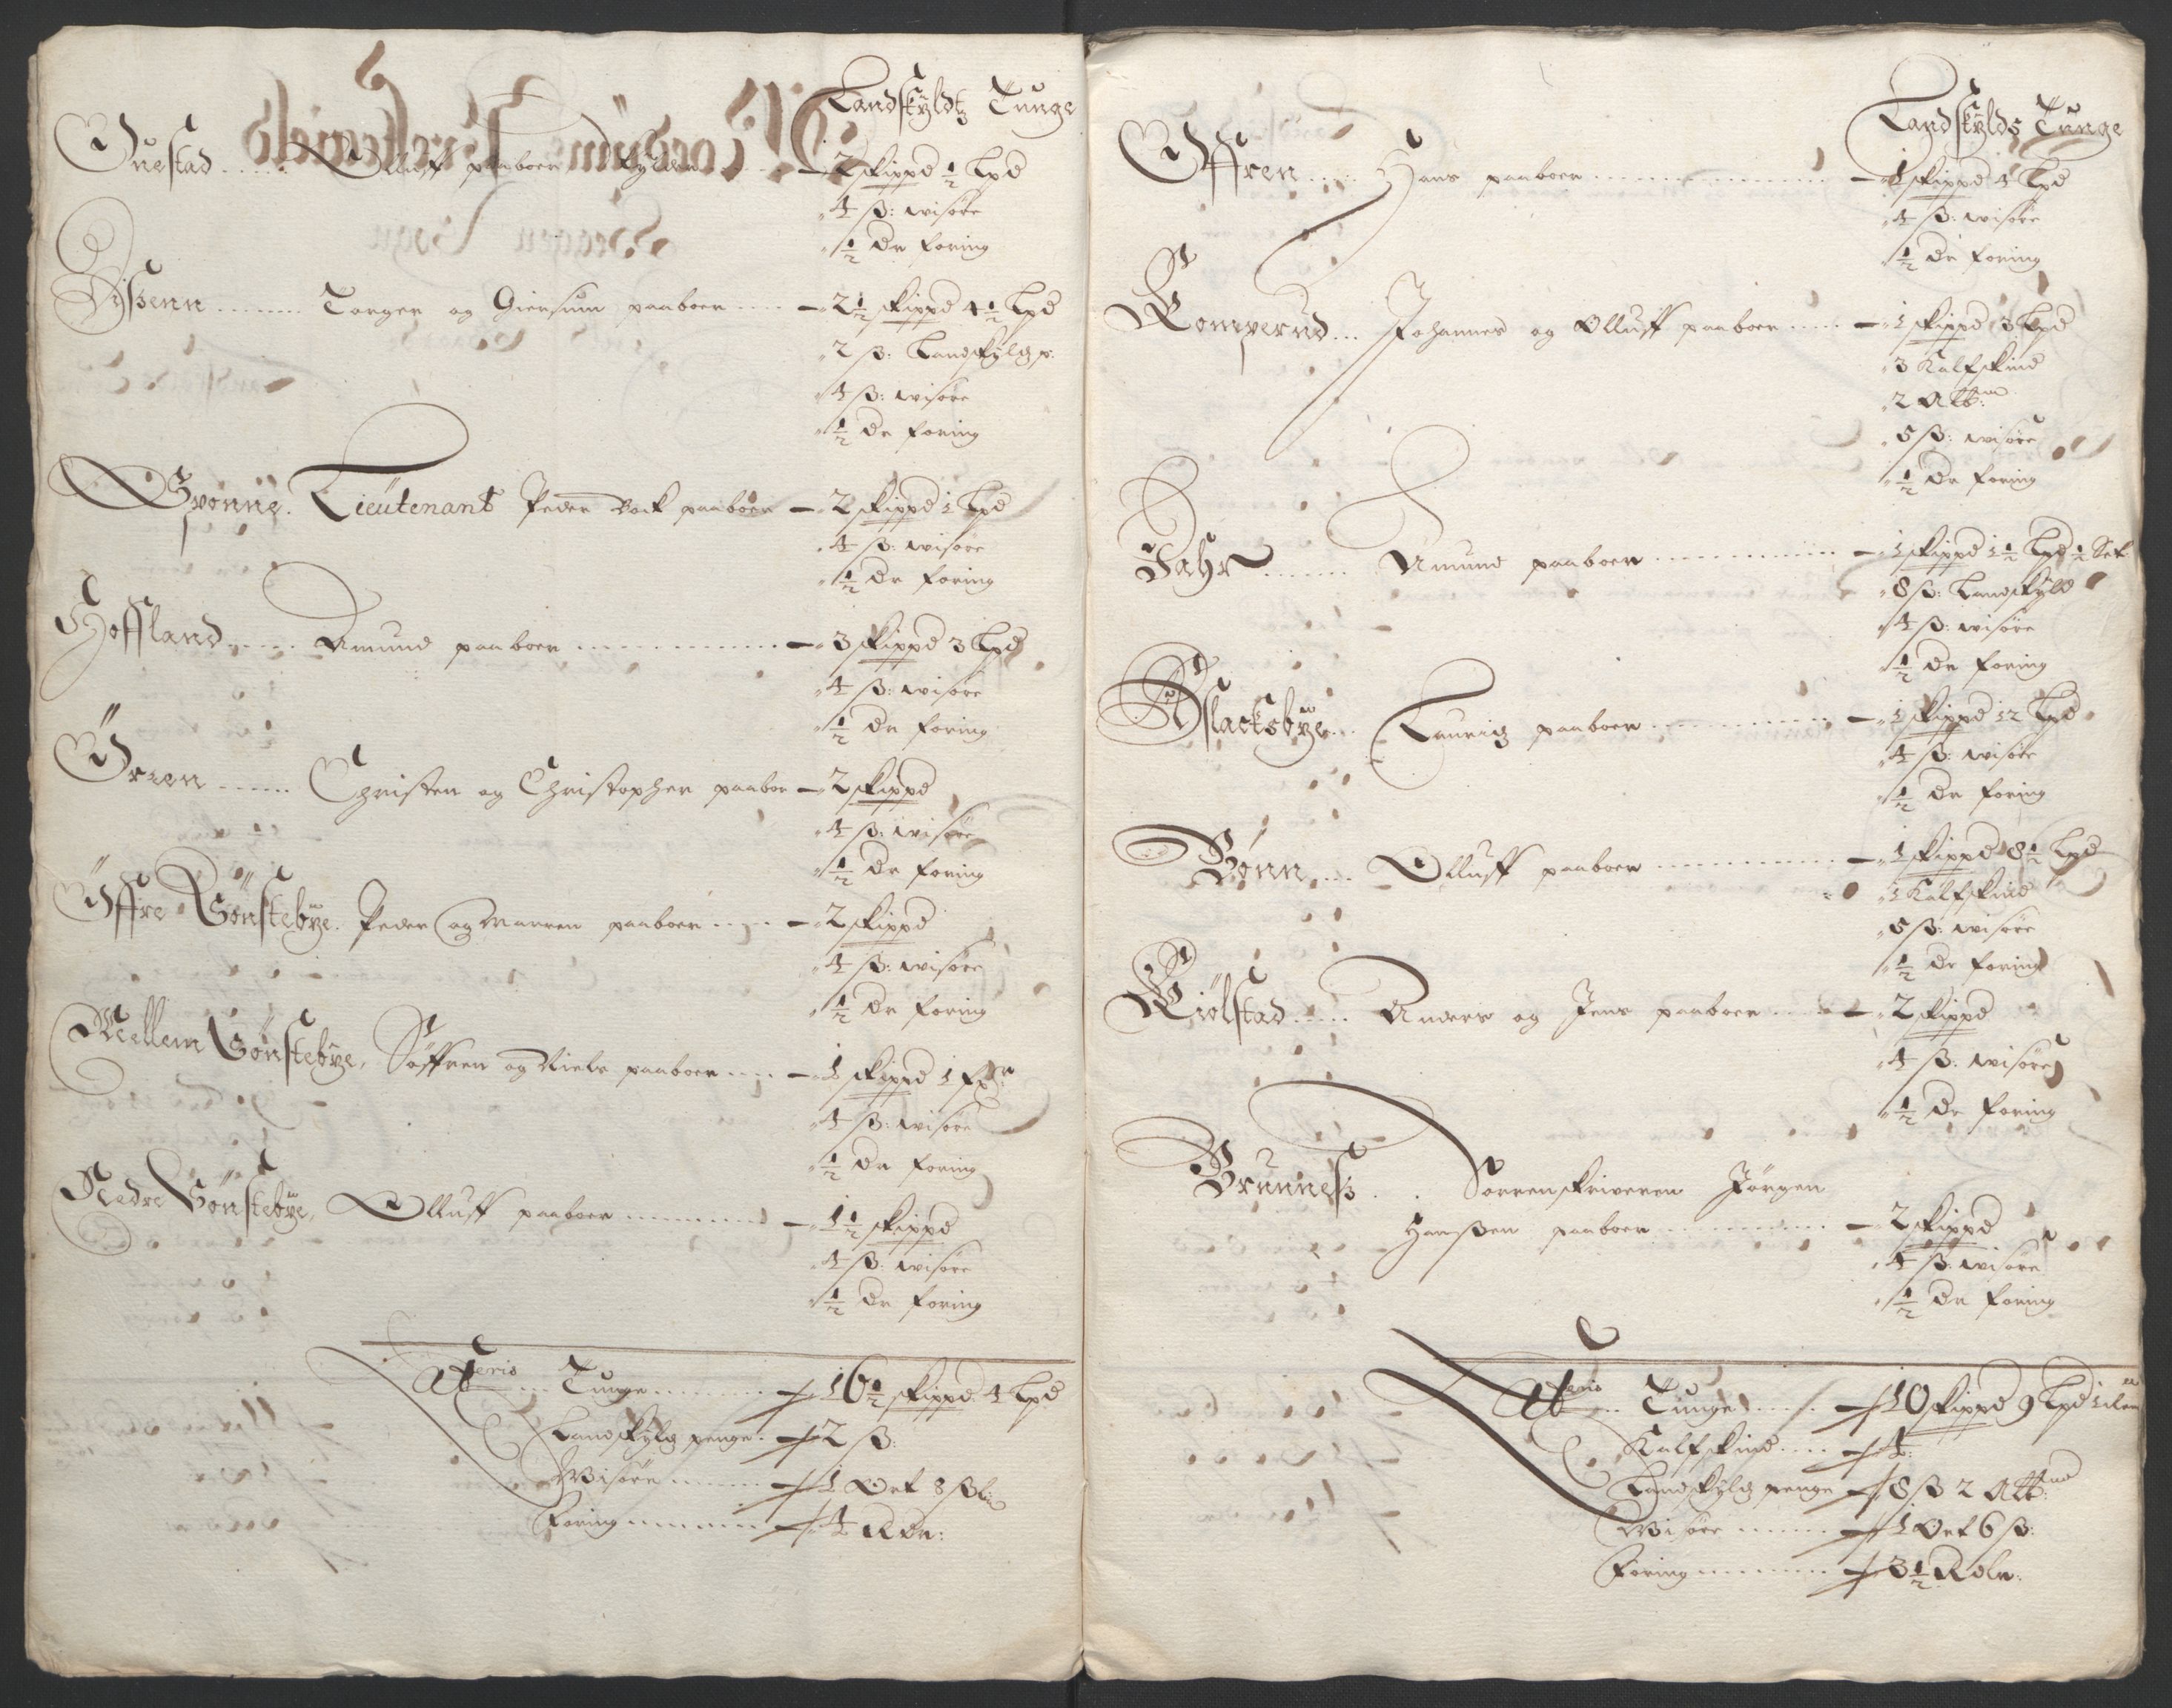 Landskyldtz Tunge
Olluff paaboer 2 skippd ½ Lpd
4 ß: wisøre
½ dr foring
Torger og paaboer 2½ skippd 4½ Lpd
2 ß: Landskyldz p:
4 ß: wisøre
½ dr foring
Lieutenant Peder paaboer 2 skippd 1 Lpd
4 ß: wisøre
½ dr foring
Hoffland Amund paaboer 3 skippd 3 Lpd
4 ß: wisøre
½ dr foring
Christen og Christopher paaboe 2 skippd
4 ß: wisøre
½ dr foring
Öffre Gönstebÿe. Peder og Maren paaboer 2 skippd
4 ß: wisøre
½ dr foring
Mellem Gönstebÿe, Søffren og Niels paaboer 1 skippd 1 fxr
4 ß: wisøre
½ dr foring
Nedre Gönstebÿe, Olluff paaboer 1½ skippd
4 ß: wisøre
½ dr foring
Lateris Tunge 16½ skippd 4 Lpd
Landskyldz penge 2 ß:
Wisøre 1 Ort 8 ß
Foring 4 Rdr:
Landskylds Tunge
Öffren Hans paaboer 1 skippd 4 Lpd
4 ß: wisøre
½ dr foring
Romperud Johannes og Olluff paaboer 1 skippd 3 Lpd
3 Kalfskind
2 Alb:
5 ß: wisøre
½ dr foring
Jahr Amund paaboer 1 skippd 1½ Lpd ½ Set
8 ß: Landskyld
4 ß: wisøre
½ dr foring
Aslacksbÿe Lauritz paaboer 1 skippd 12 Lpd
4 ß: wisøre
½ dr foring
Bönn Olluff paaboer 1 skippd 8½ Lpd
1 Kalfskind
5 ß: wisøre
½ dr foring
Kiölstad Anders og Jens paaboer 2 skippd
4 ß: wisøre
½ dr foring
Brunneß Sorrenskriveren Jørgen
Hanßen paaboer 2 skippd
4 ß: wisøre
½ dr foring
Lateris Tunge 10 skippd 9 Lpd
Kalfskind 4:
Landskyldz penge 8 ß 2 Alb:
Wisøre 1 Ort 6 ß:
Foring 3½ Rdlr: